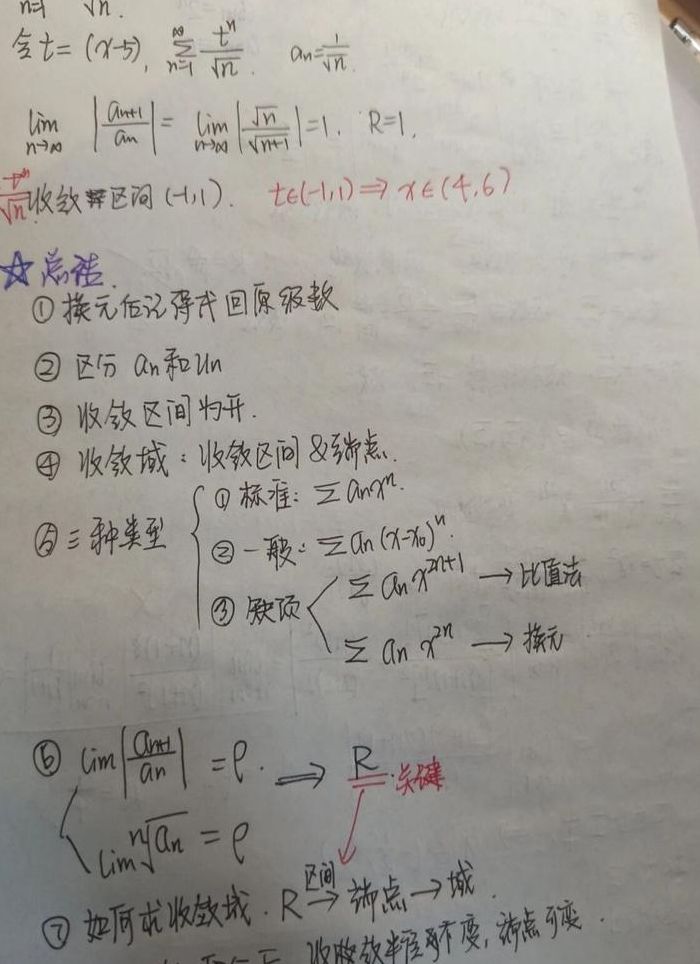 n=1 √n.
令 t = (x-5), ∞∑n=1 tⁿ/√n. an=1/√n.
lim n→∞ |an+1/an| = lim n→∞ |√n/√n+1| = 1. R=1.
tⁿ/√n 收敛区间 (-1,1). t∈(-1,1) ⇒ x∈(4,6)
☆总结.
① 换元后记得代回原级数
② 区分 an和un
③ 收敛区间为开.
④ 收敛域: 收敛区间 & 端点.
⑤ 三种类型
① 标准: ∑ anxⁿ.
② 一般: ∑ an (x-x₀)ⁿ.
③ 缺项
∑ an x²ⁿ⁺¹ → 比值法
∑ an x²ⁿ → 换元
⑥ lim |an+1/an| = ρ. ⇒ R 关键
lim ⁿ√an = ρ
⑦ 如何求收敛域. R 区间→ 端点 → 域.
收敛半径不变, 端点可变.